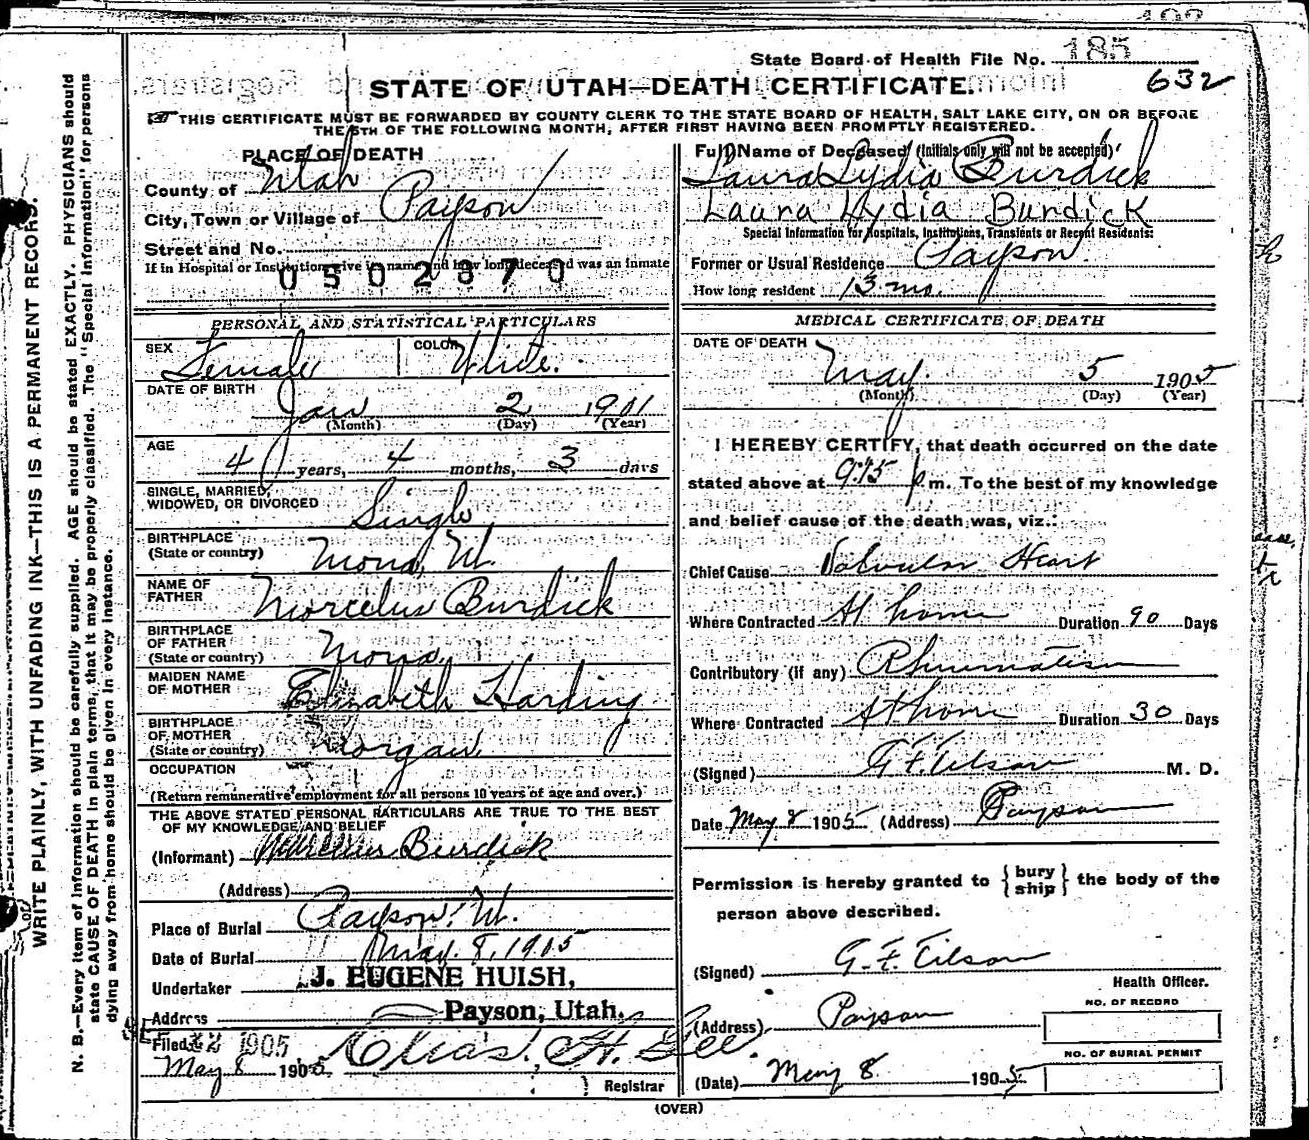 State Board of Health File No. 185
632
STATE OF UTAH—DEATH CERTIFICATE.
THIS CERTIFICATE MUST BE FORWARDED BY COUNTY CLERK TO THE STATE BOARD OF HEALTH, SALT LAKE CITY, ON OR BEFORE
THE 5TH OF THE FOLLOWING MONTH, AFTER FIRST HAVING BEEN PROMPTLY REGISTERED.
WRITE PLAINLY, WITH UNFADING INK—THIS IS A PERMANENT RECORD.
N. B.—Every item of information should be carefully supplied. AGE should be stated EXACTLY. PHYSICIANS should
state CAUSE OF DEATH in plain terms, that it may be properly classified. The "Special Information" for persons
dying away from home should be given in every instance.
PLACE OF DEATH
County of Utah
City, Town or Village of Payson
Street and No.
If in Hospital or Institution, give its name and how long deceased was an inmate
0502370
PERSONAL AND STATISTICAL PARTICULARS
SEX Female COLOR White.
DATE OF BIRTH
Jan 2 1901
(Month) (Day) (Year)
AGE
4 years, 4 months, 3 days
SINGLE, MARRIED,
WIDOWED, OR DIVORCED Single
BIRTHPLACE
(State or country) Mona, Ut.
NAME OF
FATHER Marcelus Burdick
BIRTHPLACE
OF FATHER
(State or country) Mona.
MAIDEN NAME
OF MOTHER Elizabeth Harding
BIRTHPLACE
OF MOTHER
(State or country) Morgan
OCCUPATION
(Return remunerative employment for all persons 10 years of age and over.)
THE ABOVE STATED PERSONAL PARTICULARS ARE TRUE TO THE BEST
OF MY KNOWLEDGE AND BELIEF
(Informant) Marcelus Burdick
(Address)
Place of Burial Payson, Ut.
Date of Burial May. 8, 1905
Undertaker J. EUGENE HUISH,
Address Payson, Utah.
Filed 1905
May 8 1905 Chas. H. Gee.
Registrar
Full Name of Deceased (Initials only will not be accepted)
Laura Lydia Burdick
Laura Lydia Burdick
Special Information for Hospitals, Institutions, Transients or Recent Residents:
Former or Usual Residence Payson.
How long resident 13 mo.
MEDICAL CERTIFICATE OF DEATH
DATE OF DEATH
May 5 1905
(Month) (Day) (Year)
I HEREBY CERTIFY, that death occurred on the date
stated above at 9:15 p m. To the best of my knowledge
and belief cause of the death was, viz.:
Chief Cause Valvular Heart
Where Contracted At home Duration 90 Days
Contributory (if any) Rheumatism
Where Contracted At home Duration 30 Days
(Signed) G. F. Tilson M. D.
Date May 8 1905 (Address) Payson
Permission is hereby granted to { bury ship } the body of the
person above described.
(Signed) G. F. Tilson
Health Officer.
(Address) Payson
NO. OF RECORD
NO. OF BURIAL PERMIT
(Date) May 8 1905
(OVER)